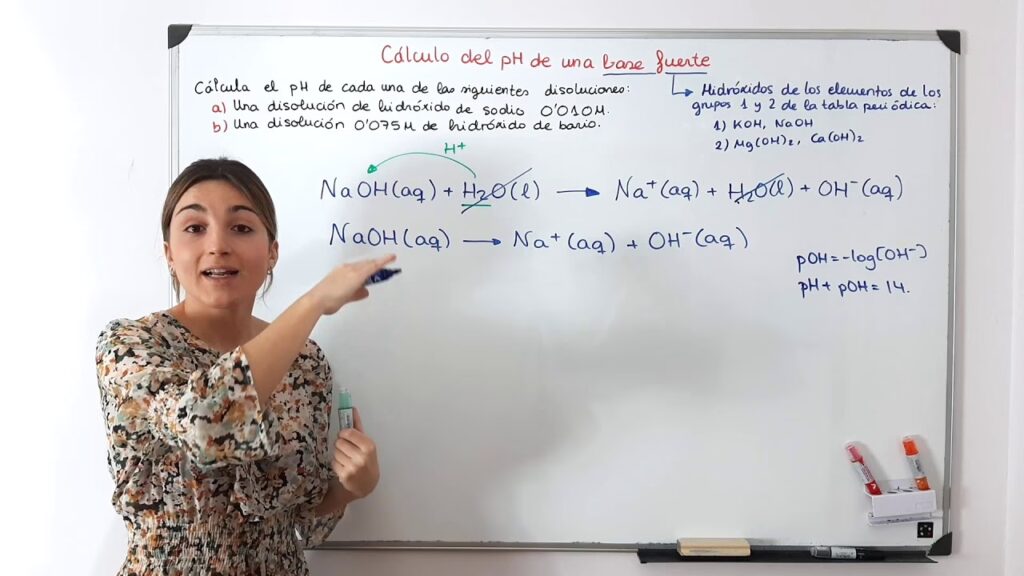 Cálculo del pH de una base fuerte
Cálcula el pH de cada una de las siguientes disoluciones:
a) Una disolución de hidróxido de sodio 0'010M.
b) Una disolución 0'075M de hidróxido de bario.
Hidróxidos de los elementos de los
grupos 1 y 2 de la tabla periódica:
1) KOH, NaOH
2) Mg(OH)₂, Ca(OH)₂
H⁺
NaOH(aq) + H₂O(l) → Na⁺(aq) + H₂O(l) + OH⁻(aq)
NaOH(aq) → Na⁺(aq) + OH⁻(aq)
pOH = -log[OH⁻]
pH + pOH = 14.